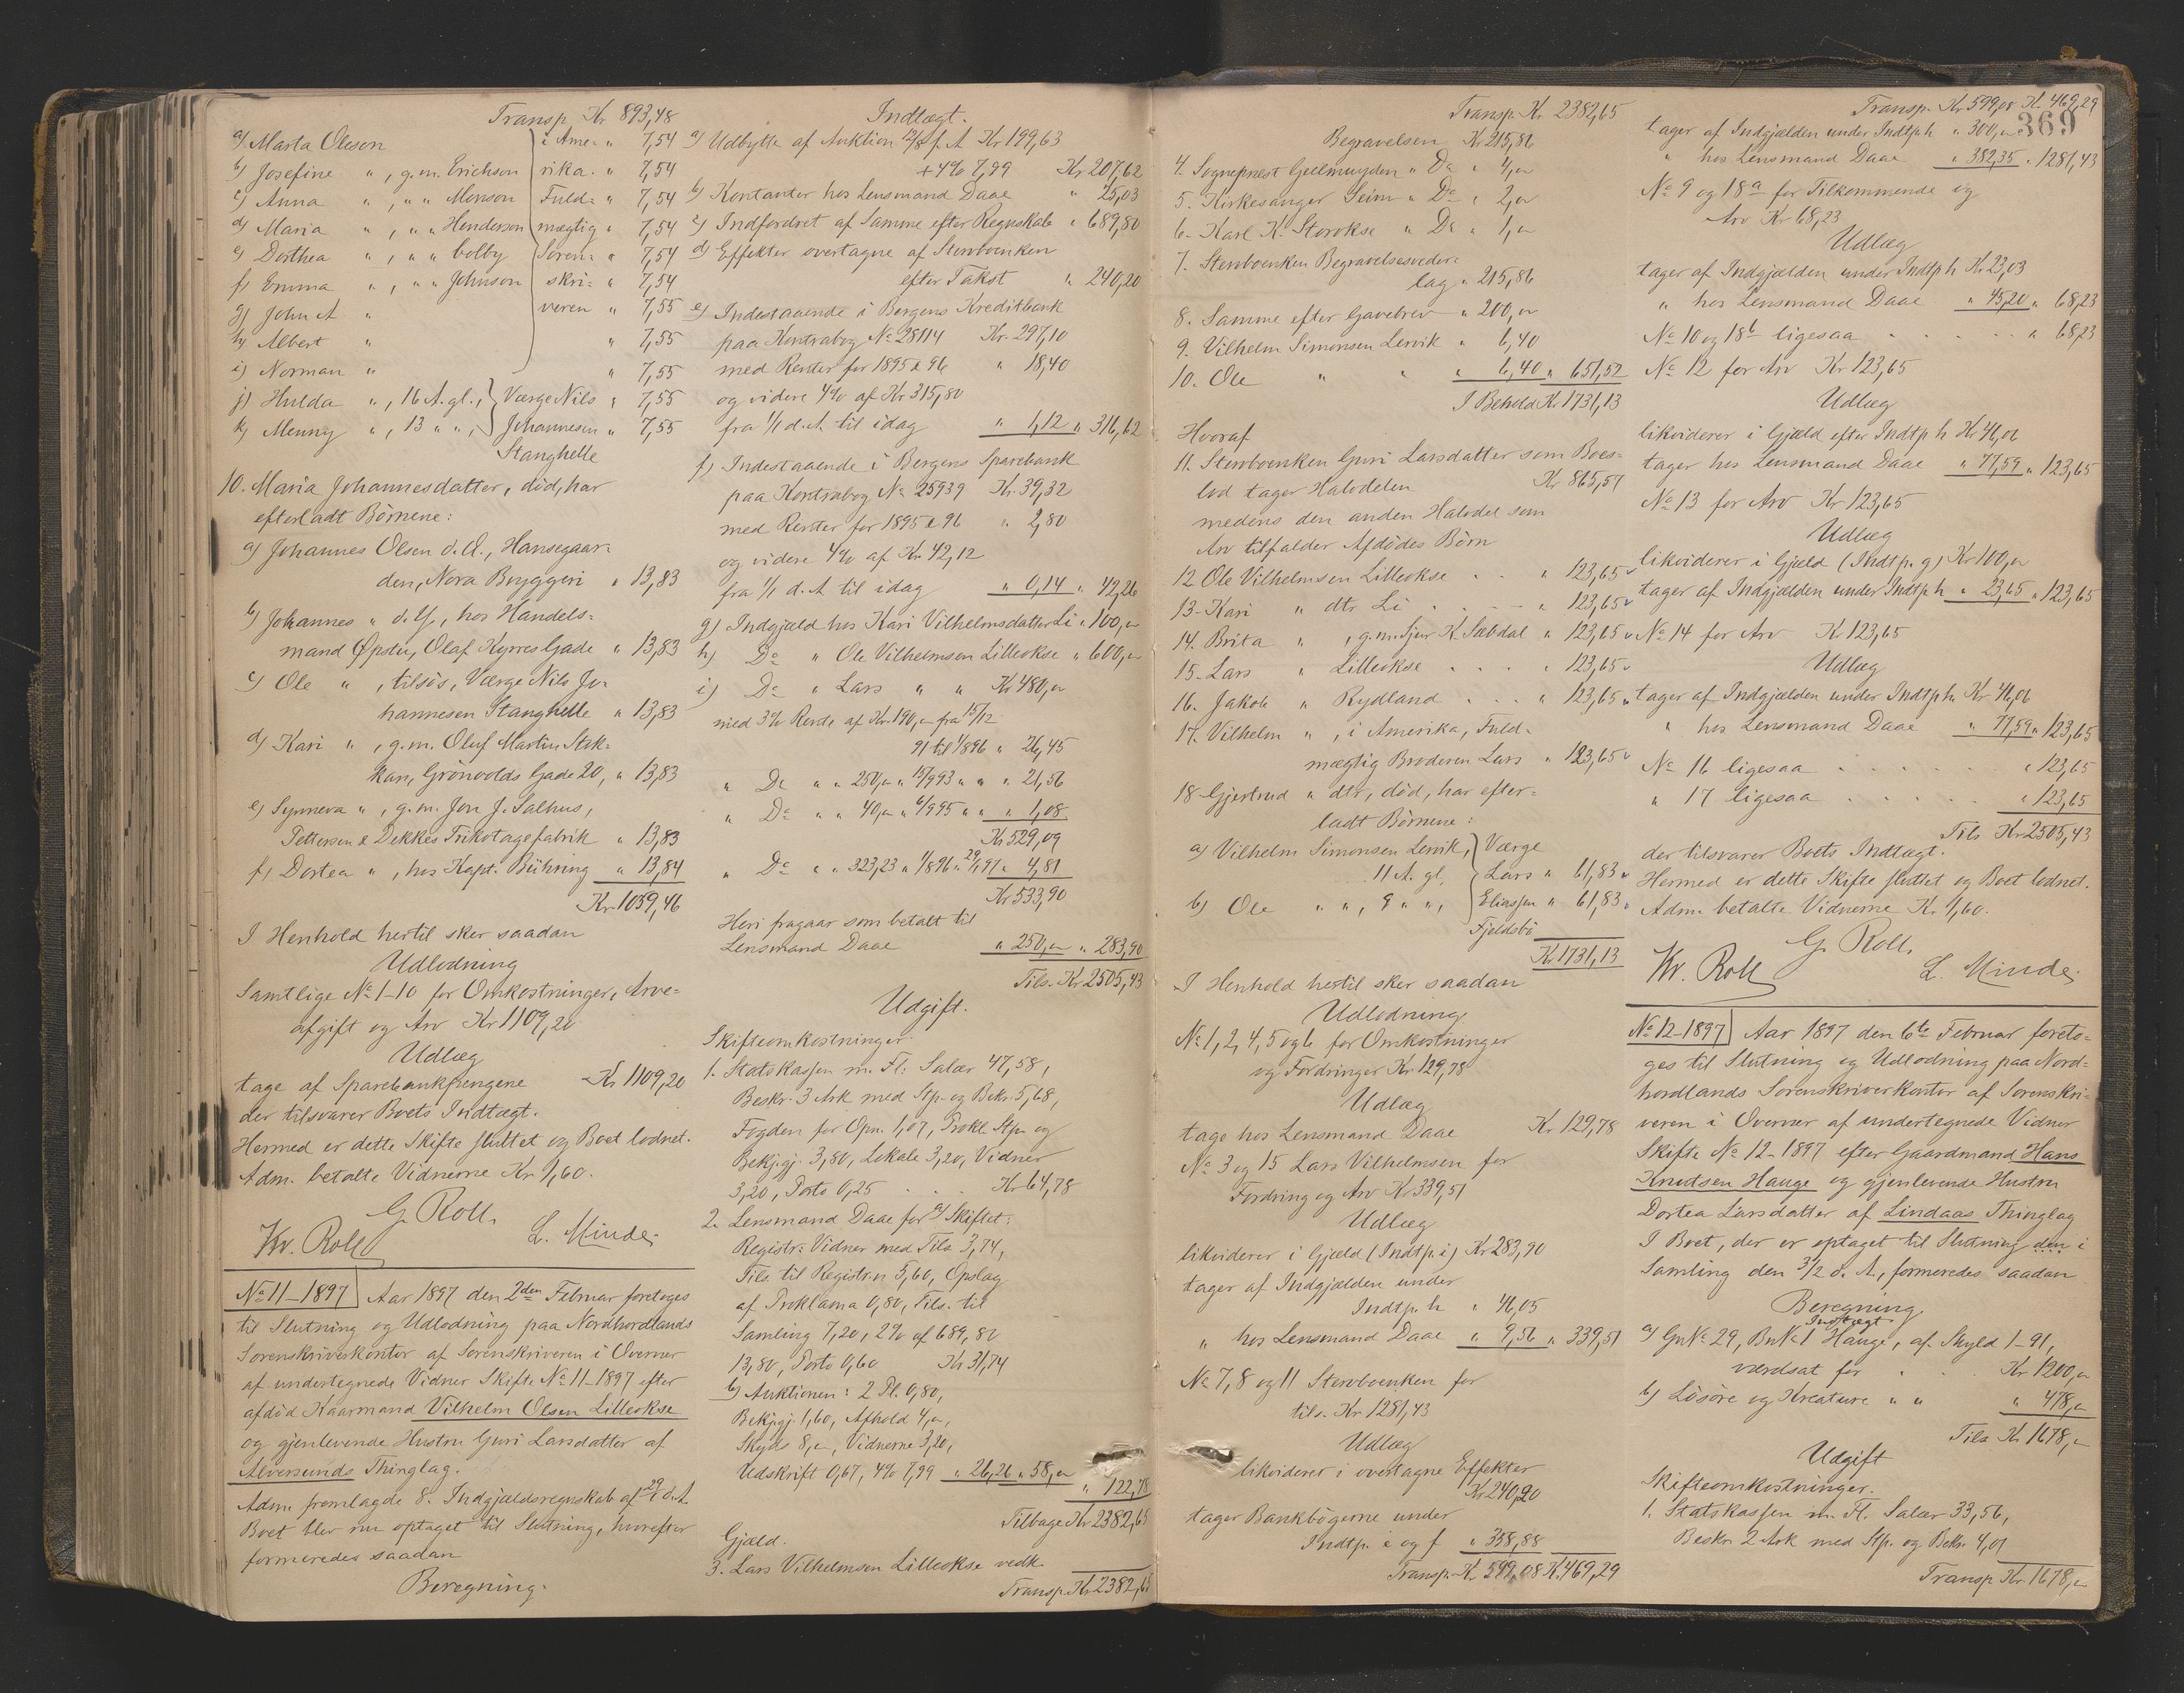 Transp. Kr. 893,48
a) Marta Olsen i Ame- " 7,54
b) Josefine " , g.m. Erichson rika. " 7,54
c) Anna " , " " Monson Fuld= " 7,54
d) Maria " , " " Henderson mægtig " 7,54
e) Dorthea " , " " Colby Soren= " 7,54
f) Emma " , " " Johnson skri= " 7,54
g) John A " veren " 7,55
h) Albert " " 7,55
i) Norman " " 7,55
j) Hulda " , 16 A. gl., Værge Nils " 7,55
k) Menny " , 13 " " , Johannesen " 7,55
Stanghelle
10. Maria Johannesdatter, död, har
efterladt Børnene:
a) Johannes Olsen d. Æ., Hansegaar=
den, Nora Bryggeri " 13,83
b) Johannes " d. y., hos Handels=
mand Øpstu, Olaf Kyrres Gade " 13,83
c) Ole " , tilsös, Værge Nils Jo-
hannesen Stanghelle " 13,83
d) Kari " , g.m. Oluf Martin Stok-
kan, Grönvolds Gade 20, " 13,83
e) Synneva " , g.m. Jon J. Salhus,
Pettersen & Dekkes Trikotagefabrik " 13,83
f) Dortea " , hos Kapt. Bühring " 13,84
Kr. 1039,46
I Henhold hertil sker saadan
Udlodning
Samtlige No 1-10 for Omkostninger, Arve=
afgift og Arv Kr 1109,20
Udlæg
tage af Sparebankpengene Kr 1109,20
der tilsvarer Boets Indtægt.
Hermed er dette Skifte sluttet og Boet lodnet.
Adm. betalte Vidnerne Kr. 1,60.
G. Roll.
Kr. Roll L. Minde.
No 11-1897 Aar 1897 den 2den Februar foretoges
til Slutning og Udlodning paa Nordhordlands
Sorenskriverkontor af Sorenskriveren i Overvær
af undertegnede Vidner Skifte No 11-1897 efter
afdød Kaarmand Vilhelm Olsen Lilleokse
og gjenlevende Hustru Guri Larsdatter af
Alversunds Thinglag.
Adm. fremlagde 8. Indgjældsregnskab af 29/1 d. A.
Boet blev nu optaget til Slutning, hvorefter
formeredes saadan
Beregning.
Indtægt.
a) Udbytte af Auktion 12/8 f. A Kr 199,63
+ 4% 7,99 Kr 207,62
b) Kontanter hos Lensmand Daae " 25,03
c) Indfordret af Samme efter Regnskab " 689,80
d) Effekter overtagne af Stervboenken
efter Takst " 240,20
e) Indestaaende i Bergens Kreditbank
paa Kontrabog No 28114 Kr. 297,10
med Renter for 1895 & 96 " 18,40
og videre 4% af Kr 315,80
fra 1/1 d. A til idag " 1,12 " 316,62
f) Indestaaende i Bergens Sparebank
paa Kontrabog No 25939 Kr. 39,32
med Renter for 1895 & 96 " 2,80
og videre 4% af Kr 42,12
fra 1/1 d. A til idag " 0,14 " 42,26
g) Indgjæld hos Kari Vilhelmsdatter Li " 100,"
h) Do " Ole Vilhelmsen Lilleokse " 600,"
i) Do " Lars " " Kr 480,"
med 3% Rente af Kr. 190,- fra 15/12
91 til 1/8 96 " 26,45
" Do " " 250,- " 15/9 93 " " " 21,56
" Do " " 40,- " 6/9 95 " " " 1,08
Kr 529,09
" Do " " 323,23 " 1/8 96 " 29/1 97 " 4,81
Kr 533,90
Heri fragaar som betalt til
Lensmand Daae " 250,- " 283,90
Tils. Kr 2505,43
Udgift.
Skifteomkostninger:
1. Statskassen m. Fl: Salær 47,58,
Beskr. 3 Ark med Stp. og Bekr. 5,68,
Fogden for Opn. 1,07, Prokl. Stp. og
Bekjgj. 3,80, Lokale 3,20, Vidner
3,20, Porto 0,25 . . . Kr 64,78
2. Lensmand Daae for a) Skiftet:
Registr. Vidner med Tils. 3,74,
Tils. til Registr.n 5,60, Opslag
af Proklama 0,80, Tils. til
Samling 7,20, 2% af 689,80
13,80, Porto 0,60 Kr 31,74
b) Auktionen: 2 Pl. 0,80,
Bekjgj. 1,60, Afhold 4,-,
Skyds 8,-, Vidnerne 3,20,
Udskrift 0,67, 4% 7,99 " 26,26 " 58,-
" 122,78
Tilbage Kr 2382,65
Gjæld.
3. Lars Vilhelmsen Lilleokse vedk.
Transp. Kr 2382,65
Transp. Kr 2382,65
Begravelsen Kr 215,86
4. Sogneprest Gjellmuyden " Do " 4,-
5. Kirkesanger Seim " Do " 2,-
6. Karl K. Storokse " Do " 1,-
7. Stervboenken Begravelsesveder=
lag " 215,86
8. Samme efter Gavebrev " 200,-
9. Vilhelm Simonsen Lervik " 6,40
10. Ole " " " 6,40 " 651,52
I Behold Kr 1731,13
Hvoraf
11. Stervboenken Guri Larsdatter som Boes=
lod tager Halvdelen Kr 865,57
medens den anden Halvdel som
Arv tilfalder Afdödes Børn
12 Ole Vilhelmsen Lilleokse . . " 123,65
13. Kari " dtr Li . . . " 123,65
14. Brita " , g.m. Sjur K. Sæbdal " 123,65
15. Lars " Lilleokse . . . " 123,65
16. Jakob " Rydland . . . " 123,65
17. Vilhelm " , i Amerika, Fuld=
mægtig Broderen Lars " 123,65
18 Gjertrud " dtr, död, har efter=
ladt Børnene:
a) Vilhelm Simonsen Lervik, Værge
11 A. gl. Lars " 61,83
b) Ole " " , 8 " " , Eliassen " 61,83
Fjeldsbö
Kr 1731,13
I Henhold hertil sker saadan
Udlodning
No 1, 2, 4, 5 og 6 for Omkostninger
og Fordringer Kr. 129,78
Udlæg
tage hos Lensmand Daae Kr. 129,78
No 3 og 15 Lars Vilhelmsen for
Fordring og Arv Kr 339,51
Udlæg
likviderer i Gjæld (Indtp. i) Kr 283,90
tager af Indgjælden under
Indtp. h " 46,05
" hos Lensmand Daae " 9,56 " 339,51
No 7, 8 og 11 Stervboenken for
tils. Kr 1281,43
Udlæg
likviderer i overtagne Effekter
Kr 240,20
tager Bankbøgerne under
Indtp. e og f " 358,88
Transp. Kr 599,08 Kr. 469,29
Transp. Kr 599,08 Kr. 469,29
369
tager af Indgjælden under Indtp h " 300,-
" hos Lensmand Daae " 382,35 " 1281,43
No 9 og 18a for Tilkommende og
Arv Kr 68,23
Udlæg
tager af Indgjælden under Indtp h Kr 23,03
" hos Lensmand Daae " 45,20 " 68,23
No 10 og 18b ligesaa . . . . . " 68,23
No 12 for Arv Kr 123,65
Udlæg
likviderer i Gjæld efter Indtp h Kr 46,06
tager hos Lensmand Daae " 77,59 " 123,65
No 13 for Arv Kr 123,65
Udlæg
likviderer i Gjeld (Indtp. g) Kr 100,-
tager af Indgjælden under Indtp h " 23,65 " 123,65
No 14 for Arv Kr 123,65
Udlæg
tager af Indgjælden under Indtp h Kr 46,06
" hos Lensmand Daae " 77,59 " 123,65
No 16 ligesaa . . . . . " 123,65
" 17 ligesaa . . . . . " 123,65
Tils Kr 2505,43
der tilsvarer Boets Indtægt.
Hermed er dette Skifte sluttet og Boet lodnet.
Adm. betalte Vidnerne Kr. 1,60.
G. Roll.
Kr. Roll L. Minde.
No 12-1897 Aar 1897 den 6te Februar foreto=
ges til Slutning og Udlodning paa Nord=
hordlands Sorenskriverkontor af Sorenskri=
veren i Overvær af undertegnede Vidner
Skifte No 12-1897 efter Gaardmand Hans
Knutsen Hauge og gjenlevende Hustru
Dortea Larsdatter af Lindaas Thinglag
I Boet, der er optaget til Slutning den i
Samling den 3/2 d. A., formeredes saadan
Beregning.
Indtægt
a) Gn No 29, Bn No 1 Hauge, af Skyld 1-91,
værdsat for . . Kr 1200,-
b) Lösöre og Kreature " " " 478,-
Tils Kr 1678,-
Udgift
Skifteomkostninger.
1. Statskassen m. Fl. Salær 33,56,
Beskr. 2 Ark med Stp. og Bekr. 4,01
Transp. Kr. 1678,-